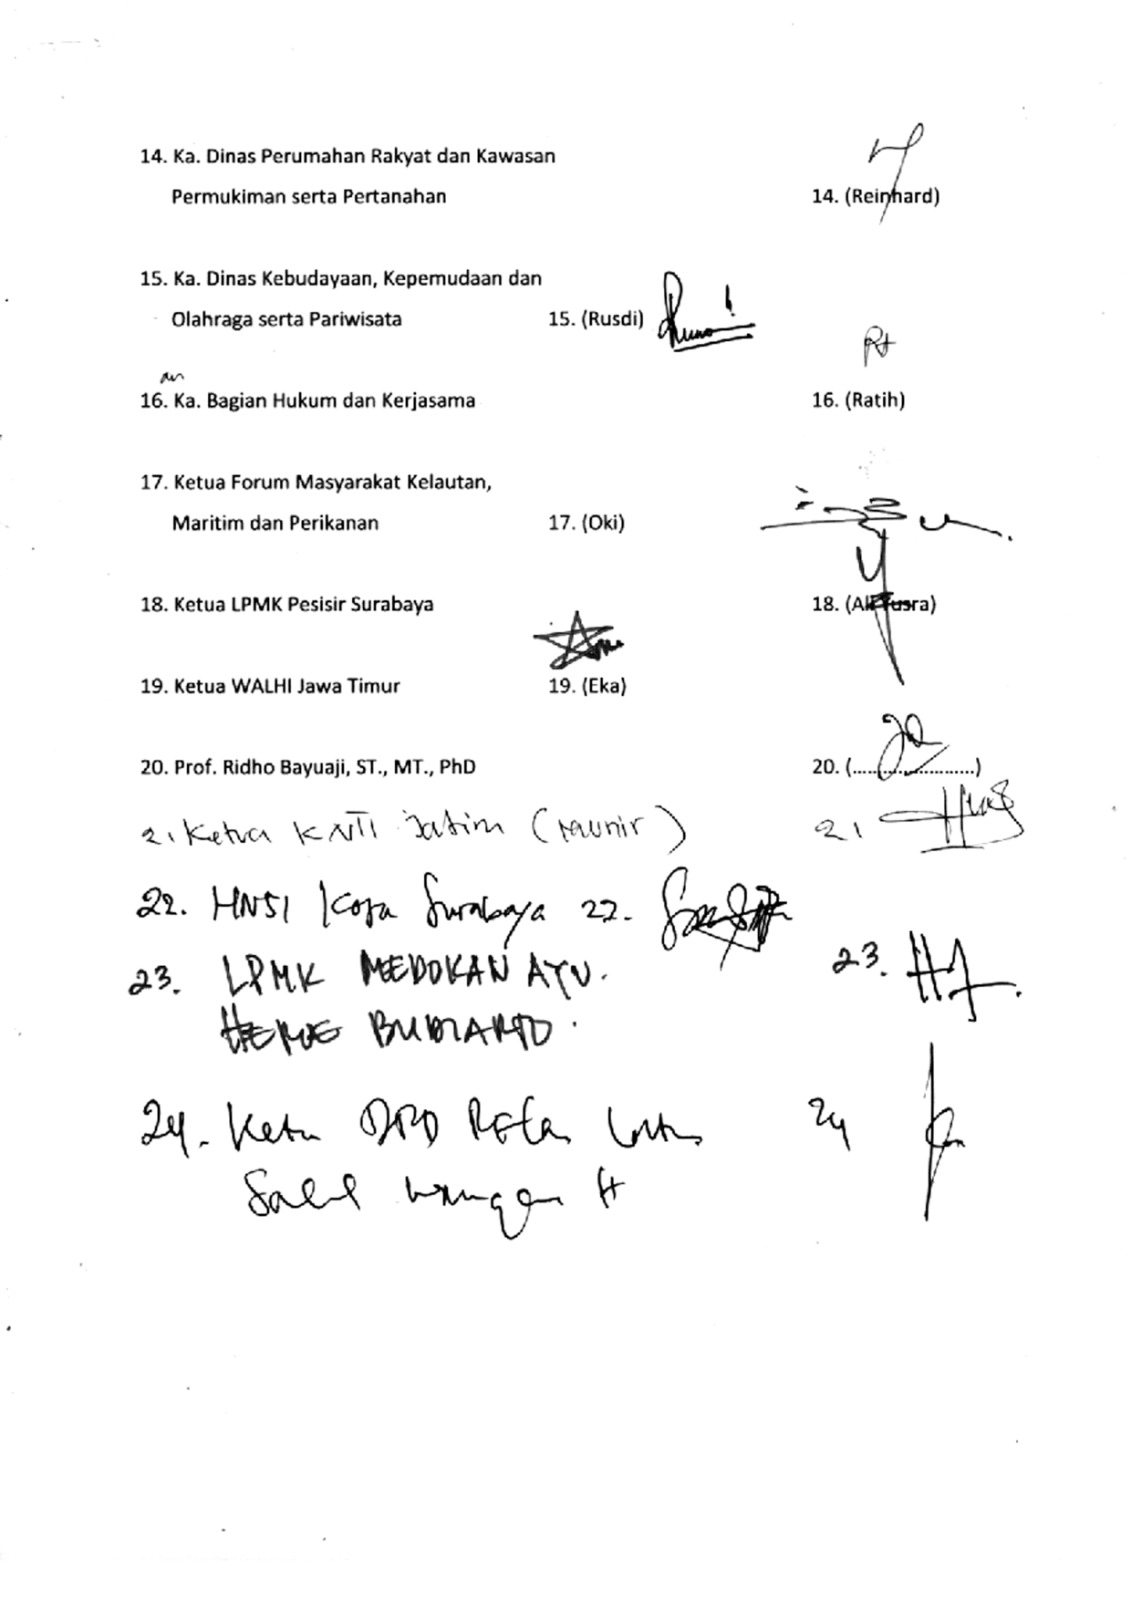 14. Ka. Dinas Perumahan Rakyat dan Kawasan
Permukiman serta Pertanahan 14. (Reinhard)
15. Ka. Dinas Kebudayaan, Kepemudaan dan
Olahraga serta Pariwisata 15. (Rusdi)
an
16. Ka. Bagian Hukum dan Kerjasama 16. (Ratih)
17. Ketua Forum Masyarakat Kelautan,
Maritim dan Perikanan 17. (Oki)
18. Ketua LPMK Pesisir Surabaya 18.
19. Ketua WALHI Jawa Timur 19. (Eka)
20. Prof. Ridho Bayuaji, ST., MT., PhD 20. (........................)
21. Ketua KNTI Jatim (Munir) 21
22. HNSI Kota Surabaya 22.
23. LPMK MEDOKAN AYU. 23.
BUDIARTO.
24. Ketua DPD 24